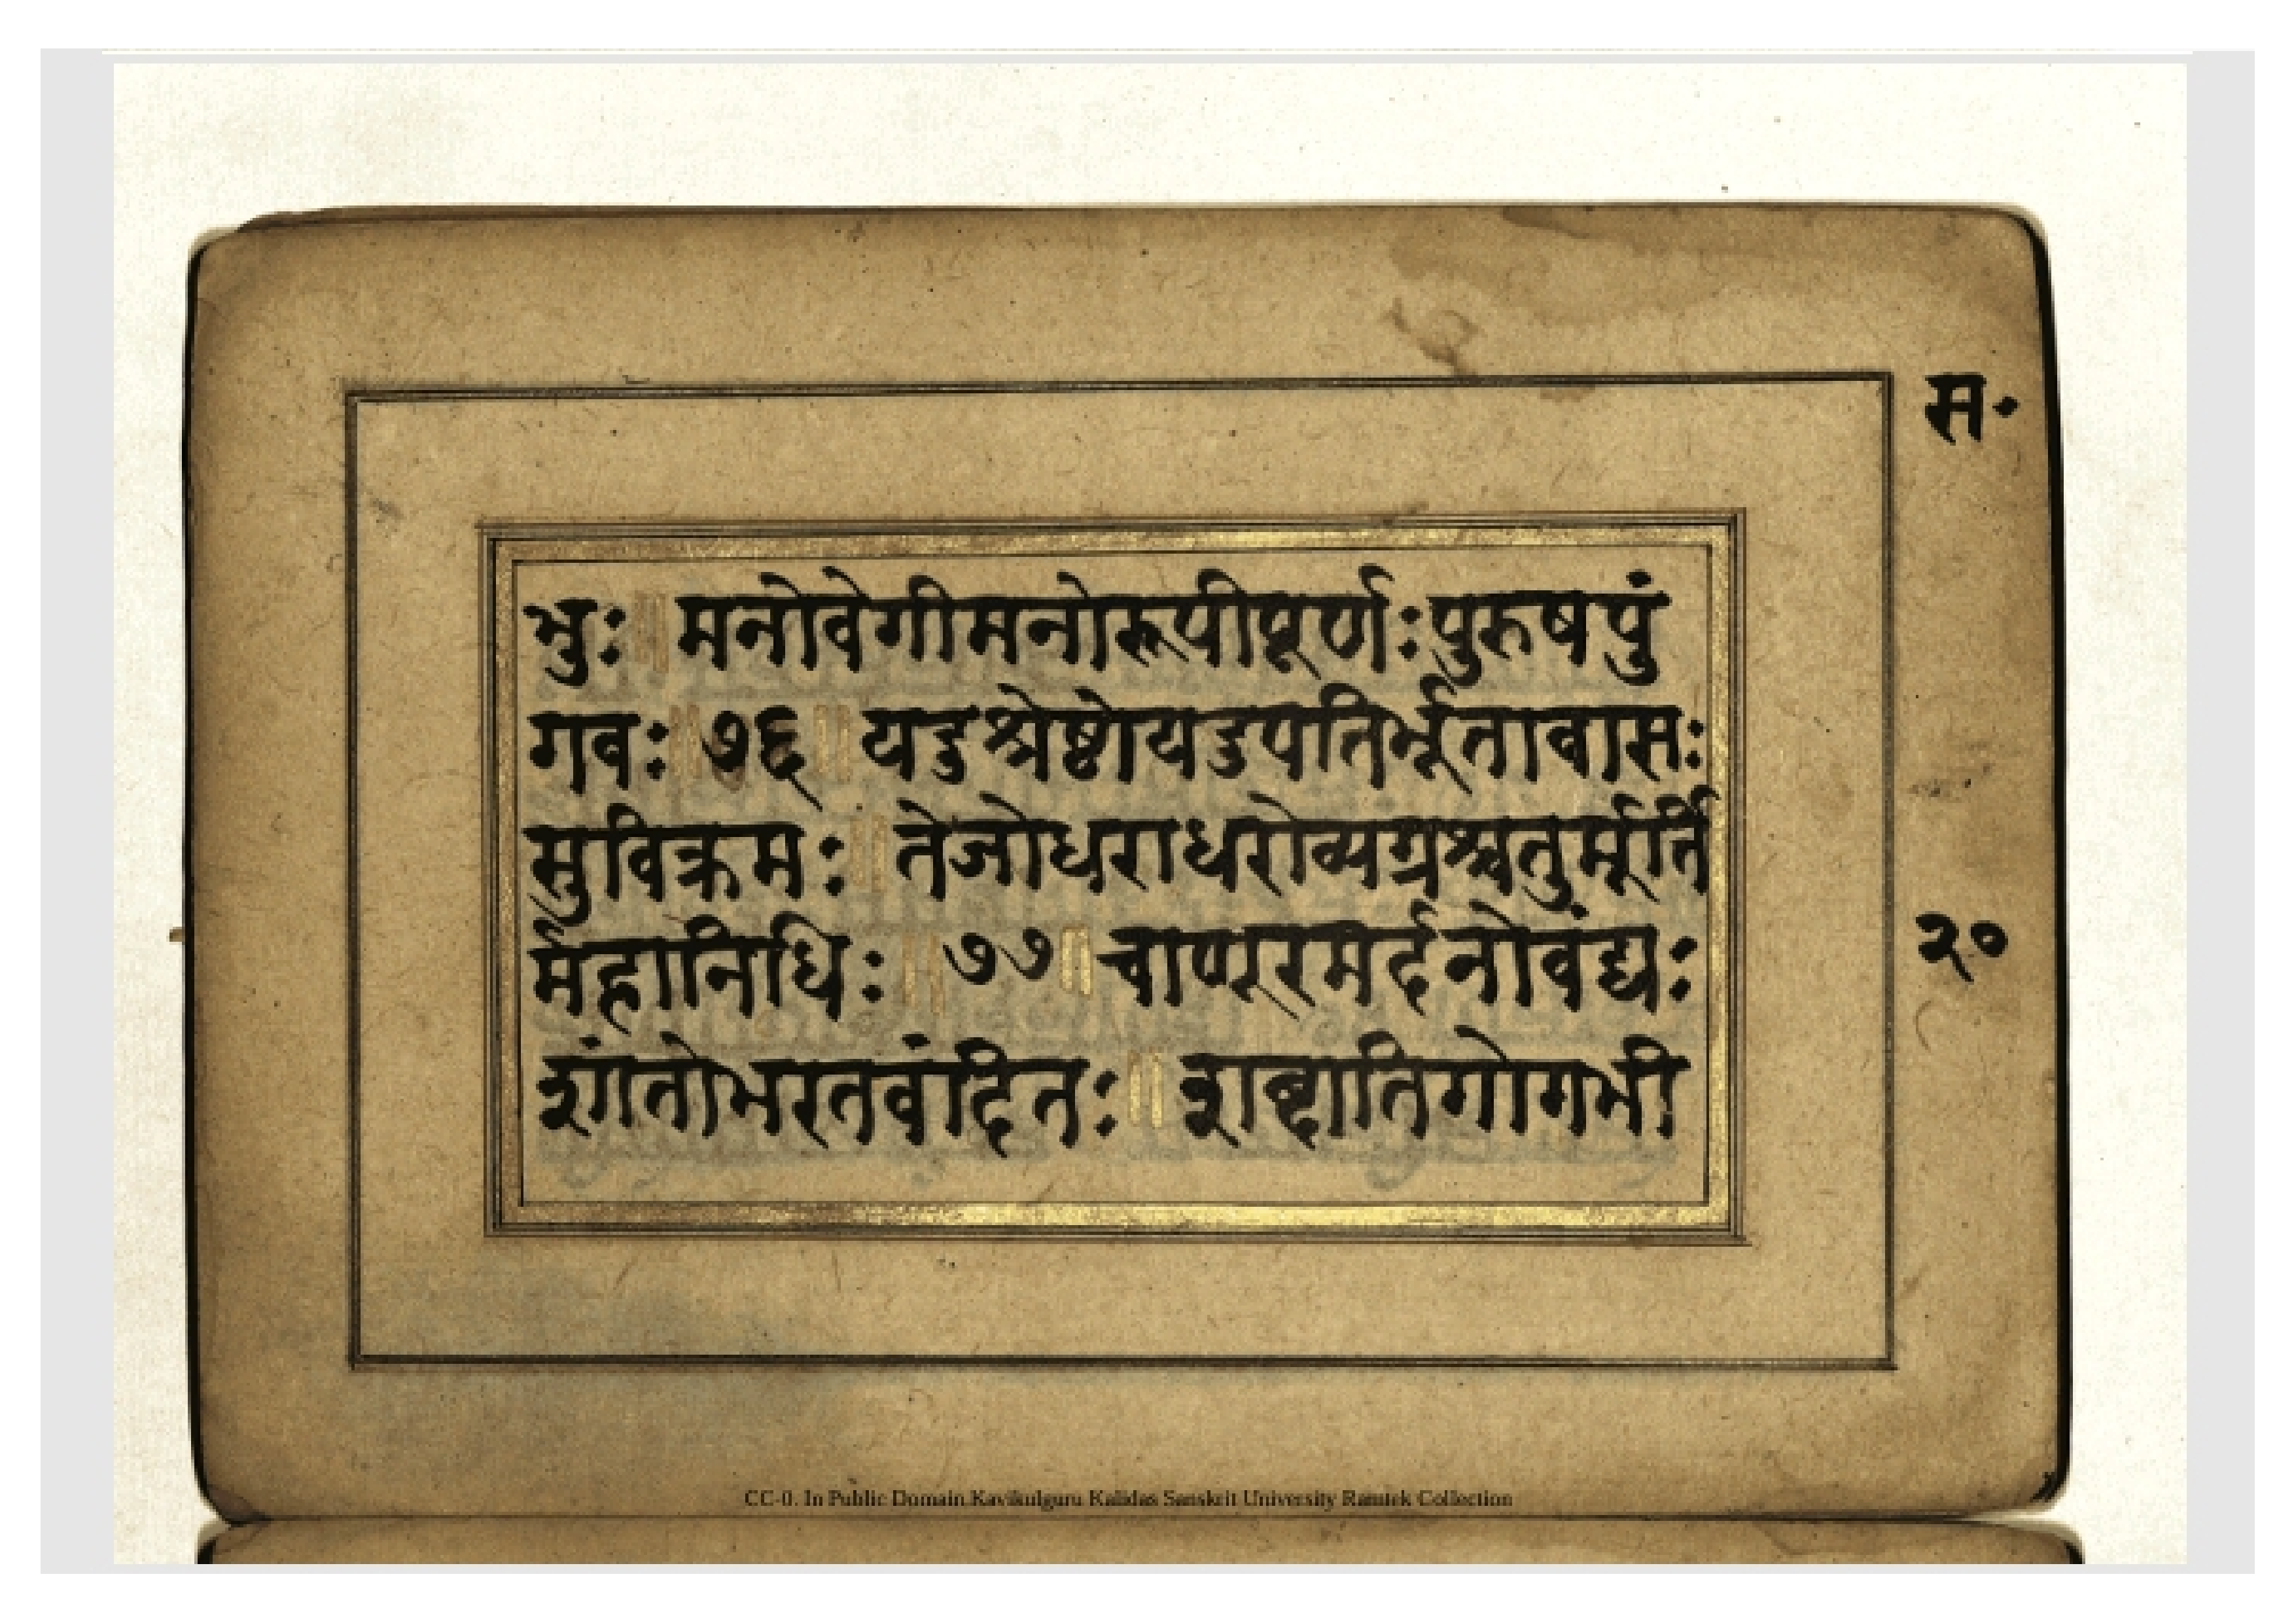 स॰
भुः ॥ मनोवेगीमनोरूपीपूर्णःपुरुषपुं
गवः ॥ ७६ ॥ यदुश्रेष्ठोयदुपतिर्भूतावासः
सुविक्रमः ॥ तेजोधराधरोव्यग्रश्चतुर्मूर्ति
र्महानिधिः ॥ ७७ ॥ चाणूरमर्दनोवंद्यः
शंातोभरतवंदितः ॥ शब्दातिगोगभी
२०
CC-0. In Public Domain.Kavikulguru Kalidas Sanskrit University Ramtek Collection